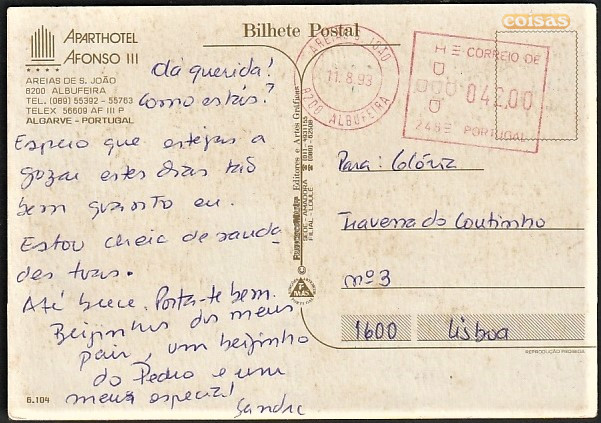 coisas
Bilhete Postal
APARTHOTEL
AFONSO III
★★★★
AREIAS DE S. JOÃO
8200 ALBUFEIRA
TEL. (089) 55392 - 55763
TELEX 56609 AF III P
ALGARVE - PORTUGAL
Olá querida!
Como estás?
Espero que estejas a
gozar estes dias tão
bem quanto eu.
Estou cheia de sauda-
des tuas.
Até breve. Porta-te bem.
Beijinhos dos meus
pais, um beijinho
do Pedro e um
meu especial!
Sandra
6.104
AREIAS S. JOÃO
11. 8. 93
8200 ALBUFEIRA
CORREIO DE
042,00
PORTUGAL
Editores e Artes Gráficas
SEDE: AMADORA
FILIAL: LOULÉ
Para: Glória
Travessa do Coutinho
nº 3
1600 Lisboa
REPRODUÇÃO PROIBIDA